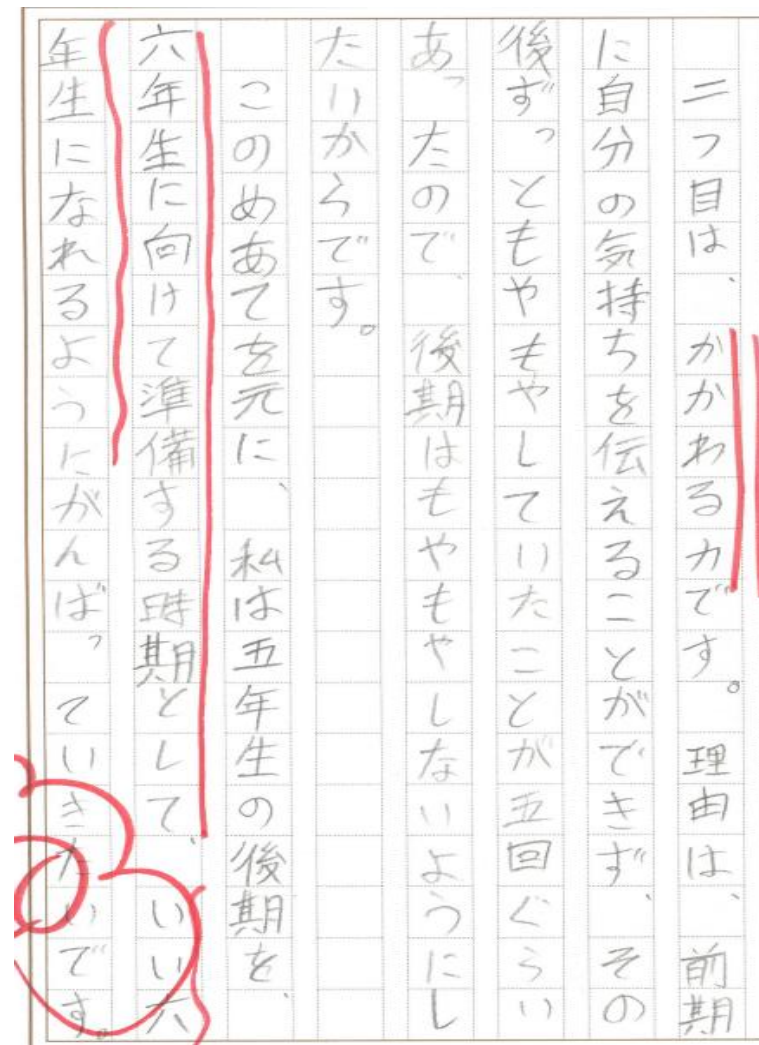 二つ目は、かかわる力です。理由は、前期
に自分の気持ちを伝えることができず、その
後ずっともやもやしていたことが五回ぐらい
あったので、後期はもやもやしないようにし
たいからです。
このめあてを元に、私は五年生の後期を、
六年生に向けて準備する時期として、いい六
年生になれるようにがんばっていきたいです。